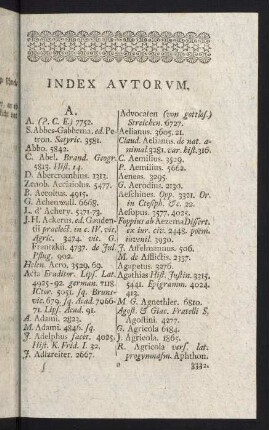 INDEX AVTORVM.
A.
A. (P. C. E.) 7752.
S. Abbes-Gabbema, ad Pe-
tron. Satyric. 3581.
Abbo. 5842.
C. Abel. Brand. Geogr.
5813. Hist. 14.
D. Abercrombius. 1313.
Zenob. Acciaiolus. 5477.
B. Accoltus. 4915.
G. Achenwall. 6668.
L. d' Achery. 5371. 73.
J. H. Ackerus, ad. Gauden-
tii
Agric. 3474. vit. G.
Frantzkii. 4737. de Jul.
Pflug. 4905.
Helen. Acro. 3529. 60.
Acta Eruditor. Lips. Lat.
4925-92. german. 7118.
ICtor. 5051. sq. Bruns-
vic. 679. sq. Acad. 7066-
71. Lips. Acad. 91.
A. Adami. 2823.
M. Adami. 4846. sq.
J. Adelphus
Hist. K. Frid. I. 32.
J. Adlzreiter. 2667.
Advocaten (von gottlos.)
Streichen. 6727.
Aelianus. 3605. 21.
Claud. Aelianus. de nat. a-
nimal. 3281. var. hist. 316.
C. Aemilius. 3529.
P. Aemilius. 5662.
Aeneas. 3295.
G. Aerodius. 2130.
Aeschines. Opp. 3321. Or.
in Ctesiph. &c. 22.
Aesopus. 3577. 4025.
Foppius ab Aezema Dissert.
ex iur. civ. 2448. poem.
iuvenil. 3930.
J. Affelmannus. 506.
M. de Afflictis. 2357.
Agapetus. 3276.
Agathias Hist. Justin. 3215.
5441. Epigramm. 4024.
413.
M. G. Agnethler. 6810.
Agost. & Giac. Fratelli S.
Agostini. 4277.
G. Agricola 6184.
J. Agricola. 1865.
R. Agricola vers. lat.
progymnasm. Aphthon.
3332.